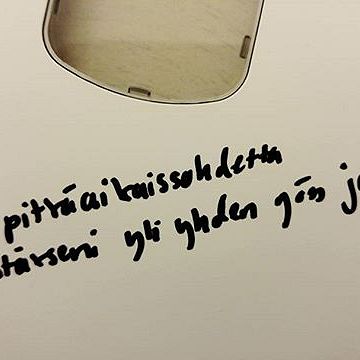 pitkäaikaissuhdetta
yli yhden yön